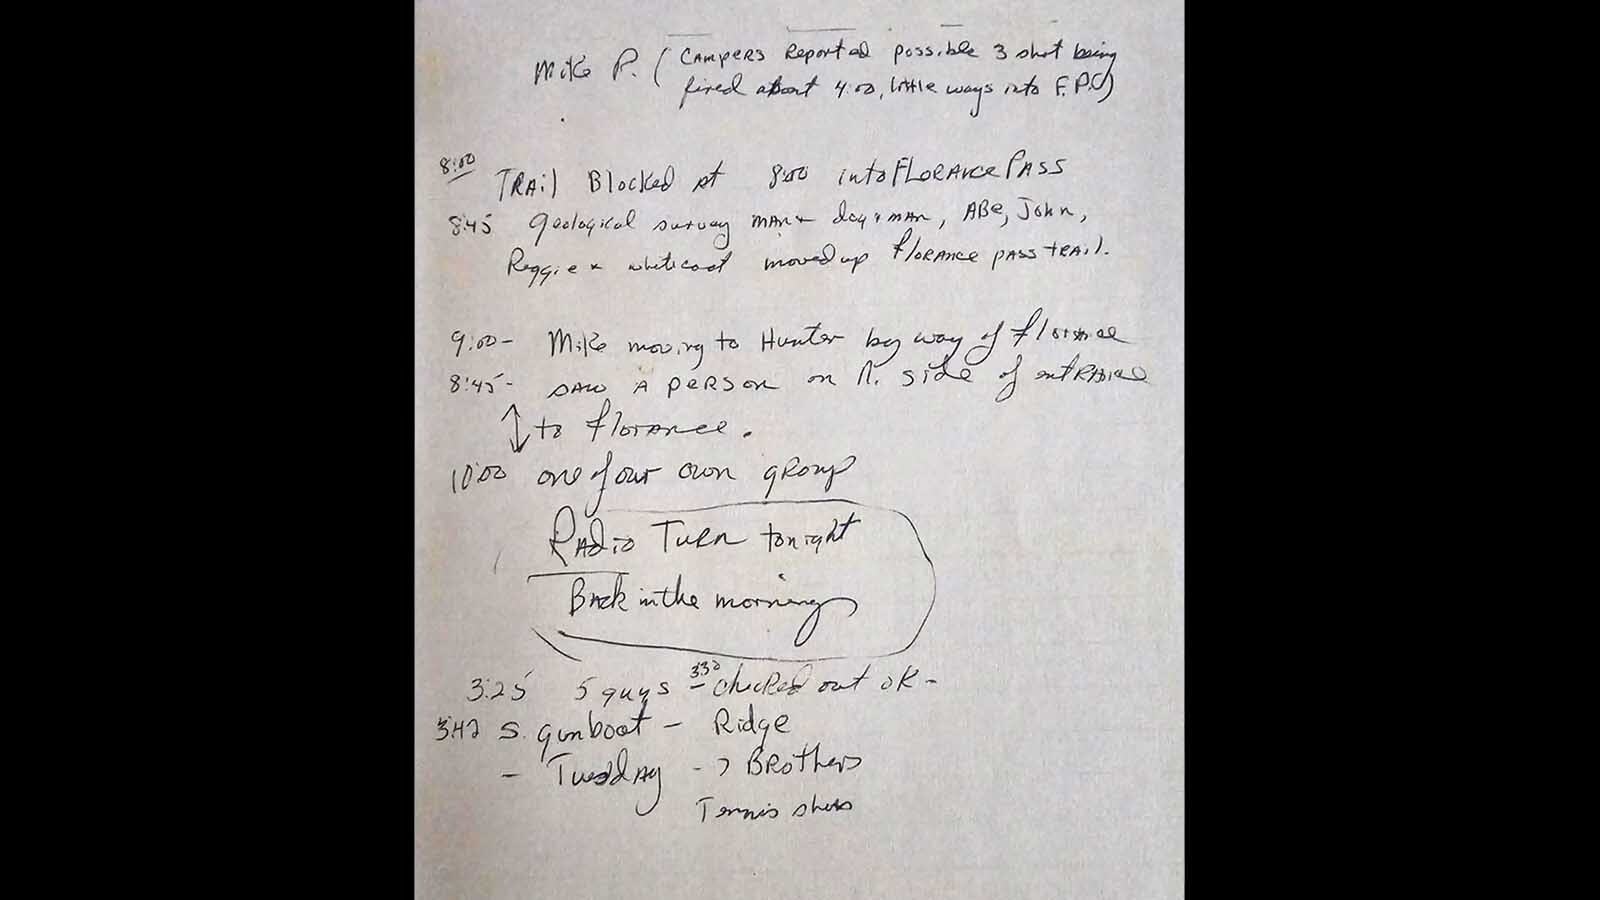 Mike P. (CAMPERS Reported possible 3 shot being
fired about 4:00, little ways into F.P.C)
8:00
TRAil Blocked At 8:00 into FLORANCE PASS
8:45 geological survey MAN + dog + MAN, ABe, John,
Reggie + whitecoat moved up florance pass TRAIL.
9:00- Mike moving to Hunter by way of florance
8:45- SAW A PERSON on N. side of entRance
to florance.
10:00 one of our own group
Radio Turn tonight
Back in the morning
3:25 5 guys 3:30 - checked out OK -
3:42 S. gunboat - Ridge
- Tuesday -> BRothers
Tennis shoes